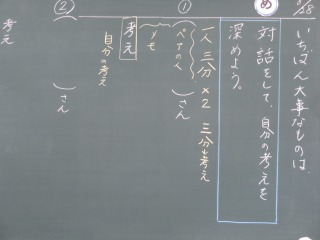 いちばん大事なものは、
め
対話をして、自分の考えを
深めよう。
一人 三分 ×2 三分 考え
①( )さん
ペアの人
メモ
考え
自分の考え
②( )さん
考え